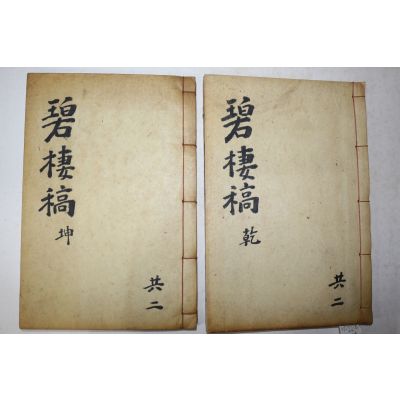 碧棲稿
乾
共二
碧棲稿
坤
共二